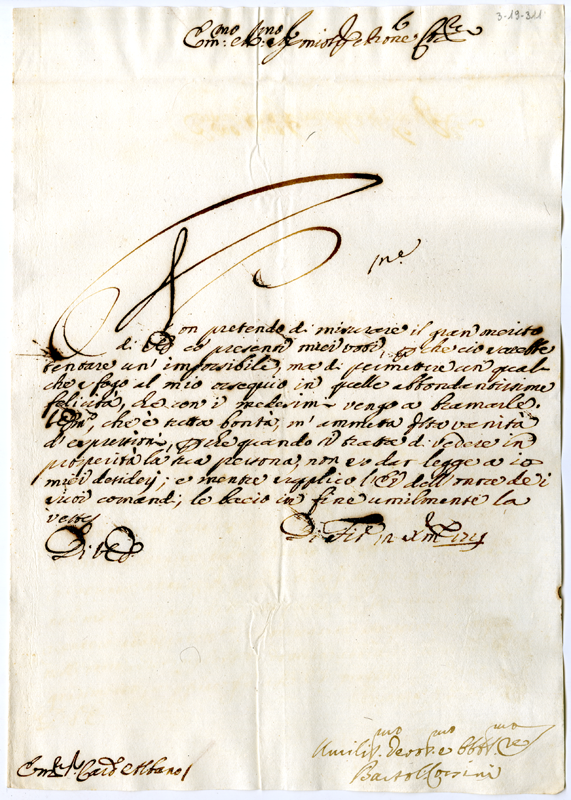 3-19-311
Em.mo e R.mo Sig.r mio Sig.r e Prone Col.mo
Non pretendo di misurare il gran merito
di V.E. co presenti miei voti, p che ciò sarebbe
tentare un' impossibile, ma di permettere un qual
che sfogo al mio ossequio in quelle abbondantissime
felicità, che con i medesimi vengo a bramarle.
V. Em.a, che è tutta bontà, m' ammetta q.sta vanità
d' espressioni, p che quando si tratta di vedere in
prosperità la sua persona, non so dar legge a i
miei desiderj; e mentre supplico l' E.V. dell' onore de i
suoi comandi, le bacio in fine umilmente la
veste
Di V.E. Di Fir.e 12 Xm.e
Em. Sig.r Card. Albani
Umiliss.mo Devot.mo e Obblig.mo Ser.e
Bartol. Corsini